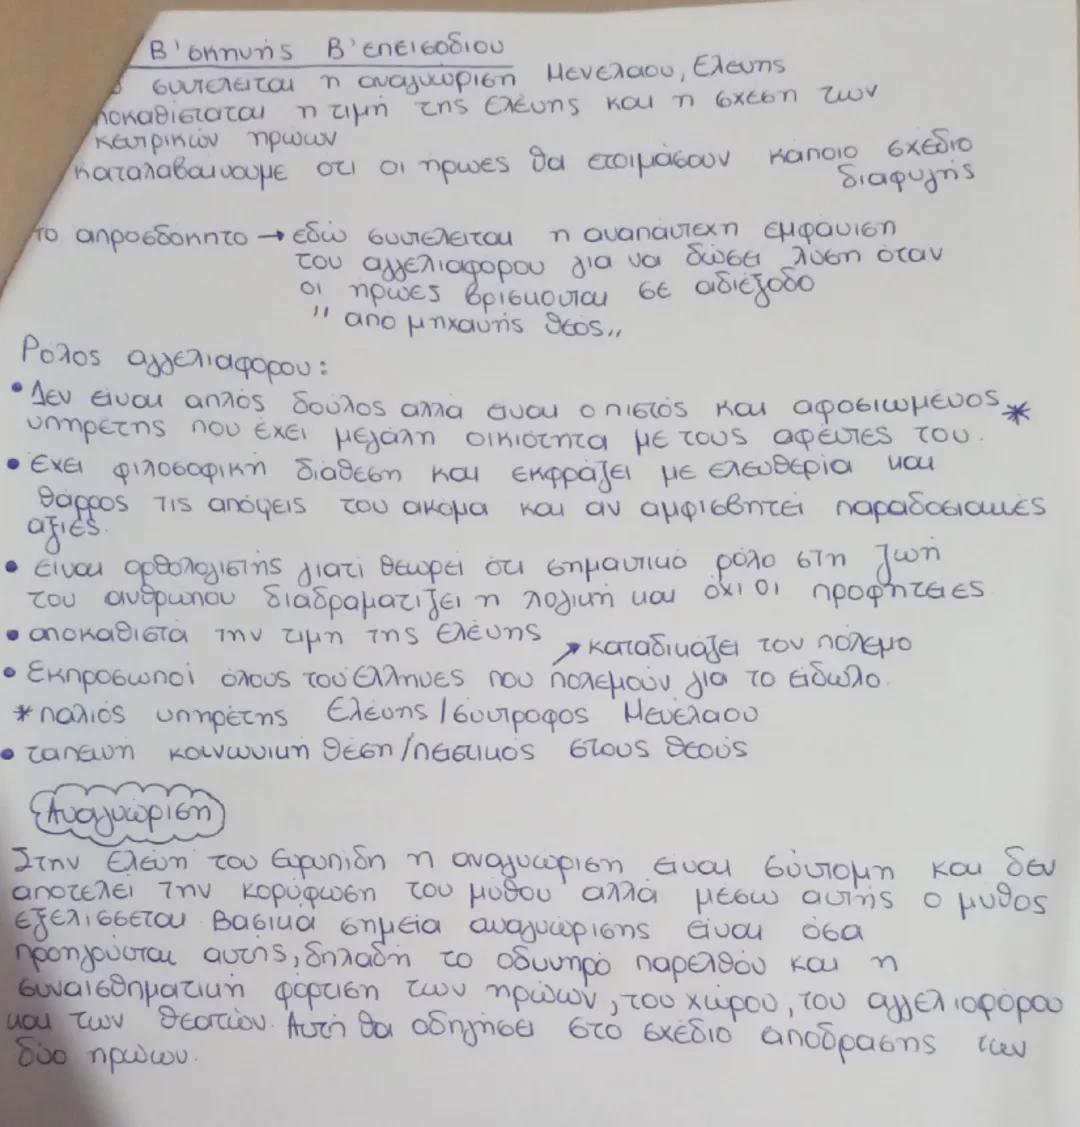 Β' σκηνής Β' επεισοδίου
συντελείται η αναγνώριση Μενελάου, Ελένης
ποκαθίσταται η τιμή της Ελένης και η σχέση των
κεντρικών ηρώων
καταλαβαίνουμε ότι οι ήρωες θα ετοιμάσουν κάποιο σχέδιο
διαφυγής
το απροσδόκητο → εδώ συντελείται η αναπάντεχη εμφάνιση
του αγγελιαφόρου για να δώσει λύση όταν
οι ήρωες βρίσκονται σε αδιέξοδο
" από μηχανής θεός "
Ρόλος αγγελιαφόρου:
• Δεν είναι απλός δούλος αλλά είναι ο πιστός και αφοσιωμένος *
υπηρέτης που έχει μεγάλη οικιότητα με τους αφέντες του.
• Έχει φιλοσοφική διάθεση και εκφράζει με ελευθερία και
θάρρος τις απόψεις του ακόμα και αν αμφισβητεί παραδοσιακές
αξίες.
• Είναι ορθολογιστής γιατί θεωρεί ότι σημαντικό ρόλο στη ζωή
του ανθρώπου διαδραματίζει η λογική και όχι οι προφητείες
• αποκαθιστά την τιμή της Ελένης
↗ καταδικάζει τον πόλεμο
• Εκπροσωπεί όλους τους Έλληνες που πολεμούν για το είδωλο.
* παλιός υπηρέτης Ελένης / σύντροφος Μενέλαου
• ταπεινή κοινωνική θέση / πιστικός στους θεούς
Αναγνώριση
Στην Ελένη του Ευριπίδη η αναγνώριση είναι σύντομη και δεν
αποτελεί την κορύφωση του μύθου αλλά μέσω αυτής ο μύθος
εξελίσσεται. Βασικά σημεία αναγνώρισης είναι όσα
προηγούνται αυτής, δηλαδή το οδυνηρό παρελθόν και η
συναισθηματική φόρτιση των ηρώων, του χώρου, του αγγελιοφόρου
και των θεατών. Αυτή θα οδηγήσει στο σχέδιο απόδρασης των
δύο ηρώων.